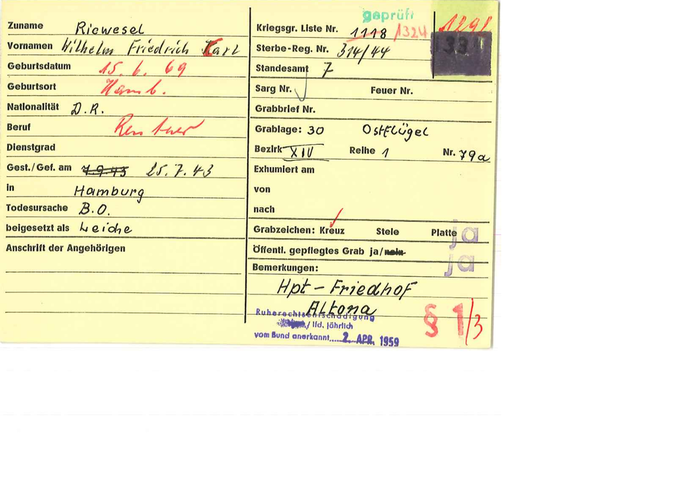 geprüft
Zuname Riewesel
Vornamen Wilhelm Friedrich Karl
Geburtsdatum 15. 6. 69
Geburtsort Hamb.
Nationalität D.R.
Beruf Rentner
Dienstgrad
Gest./Gef. am 7.9.43 25.7.43
in Hamburg
Todesursache B.O.
beigesetzt als Leiche
Anschrift der Angehörigen
Kriegsgr. Liste Nr. 1118 1324 1298
33
Sterbe-Reg. Nr. 314/44
Standesamt 7
Sarg Nr. Feuer Nr.
Grabbrief Nr.
Grablage: 30 Ostflügel
Bezirk XIV Reihe 1 Nr. 79a
Exhumiert am
von
nach
Grabzeichen: Kreuz Stele Platte ja
Öffentl. gepflegtes Grab ja/nein ja
Bemerkungen:
Hpt-Friedhof
Altona
Ruherechtsentschädigung
/ lfd. jährlich
vom Bund anerkannt 2. APR. 1959
§ 1/3